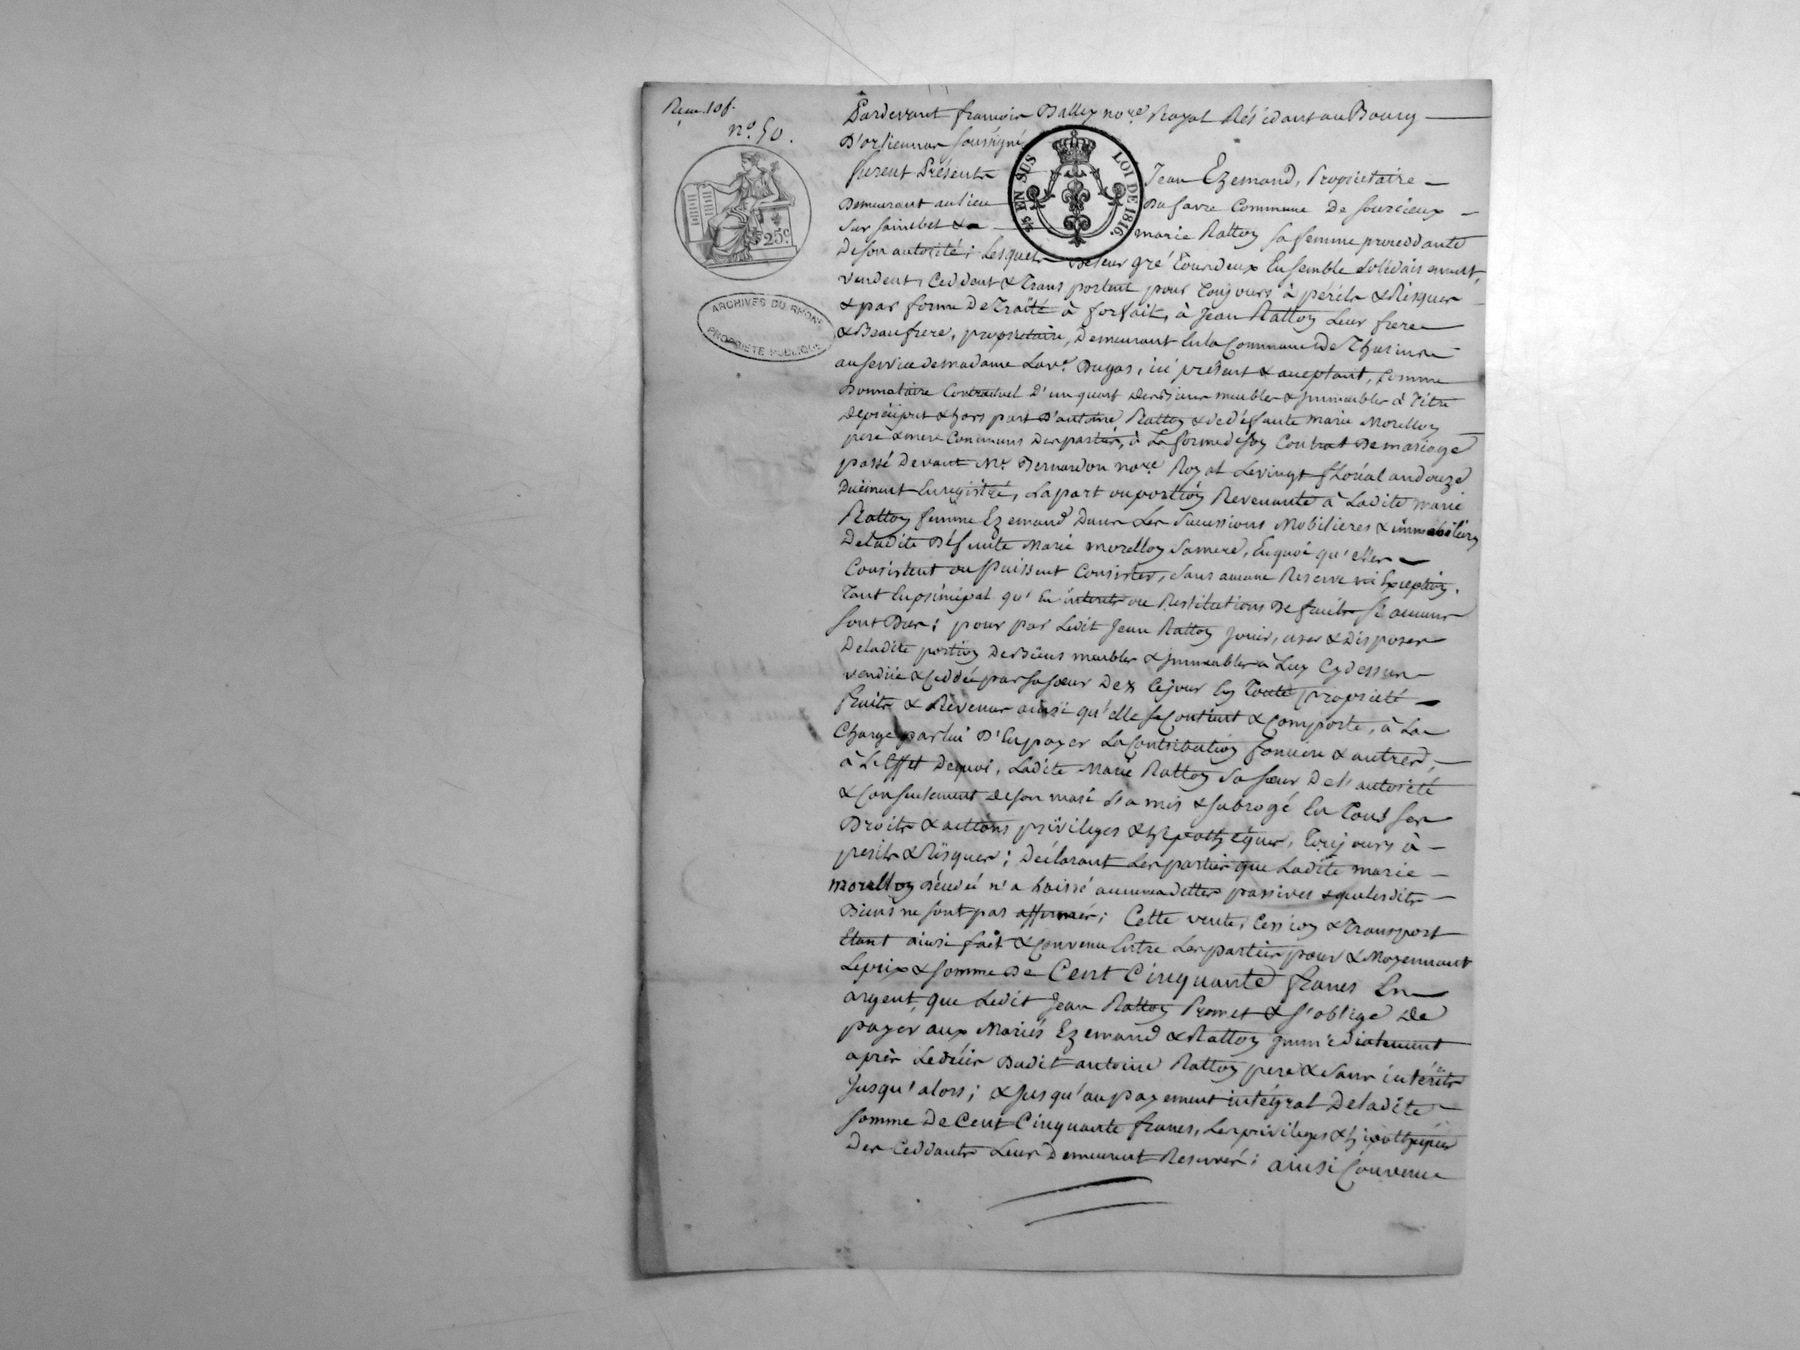 Reçu 10f.
n.° 50.
25.c
ARCHIVES DU RHÔNE
PROPRIÉTÉ PUBLIQUE
EN SUS LOI DE 1816.
Pardevant françois Dalley no.re Royal Résidant au Bourg
D'orliennas soussigné
furent Présents Jean Ezemand, Propriétaire
Demeurant au lieu Du favre Commune De sourcieux
sur sainbel & marie Ratton sa femme proceddante
De son autorité; Lesquels De leur gré Tourdeux Ensemble solidairement,
vendent, Ceddent & Transportent pour Toujours à périls & Risques
& par forme De Traité à forfait, à Jean Ratton Leur frere
& Beaufrere, propriétaire, Demeurant En la Commune De Thurins
au service de madame La v.e Dugas, ici présent & acceptant, comme
Donnataire Contractuel D'un quart des Biens meubles & immeubles à Titre
De préciput & hors part D'antoine Ratton & de défunte Marie Morellon
pere & mere Communs Des parties, à La forme de son Contrat De mariage
passé Devant M.e Bernardon no.re Royal Le vingt floréal an douze
Duement Enregistré, La part ou portion Revenante à Ladite marie
Ratton femme Ezemand Dans Les Successions Mobilieres & immobilieres
De Ladite Défunte Marie morellon sa mere, En quoi qu'elles
Consistent ou Puissent Consister, sans aucune Reserve ni Exception.
Tant En principal qu'En intérêts ou Restitutions De fruits si aucuns
sont Dus; pour par Ledit Jean Ratton jouir, user & Disposer
De Ladite portion Des Biens meubles & immeubles à Luy Cydessus
vendue & Ceddée par sa sœur Dez Ce jour En Toute propriété
fruits & Revenus ainsi qu'elle se Contient & Comporte, à La
Charge par lui D'En payer La Contribution fonciere & autres,
à L'Effet De quoi, Ladite Marie Ratton sa sœur De l'autorité
& Consentement de son mari L'a mis & subrogé En Tous ses
Droits & actions privileges & hypotheques, Toujours à
perils & Risques; Déclarant Les parties que Ladite marie
morellon décédée n'a laissé aucunes dettes passives & que lesdits
Biens ne sont pas affermés; Cette vente, Cession & Transport
Etant ainsi fait & Convenu Entre Les parties pour & Moyennant
Le prix & somme De Cent Cinquante francs En
argent, que Ledit Jean Ratton Promet & s'oblige De
payer aux Mariés Ezemand & Ratton immédiatement
après Le décès Dudit antoine Ratton pere & sans intérêts
Jusqu'alors; & jusqu'au payement intégral De Ladite
somme De Cent Cinquante francs, Les privileges & hypotheques
Des Ceddants Leur Demeurent Reservés; ainsi Convenu